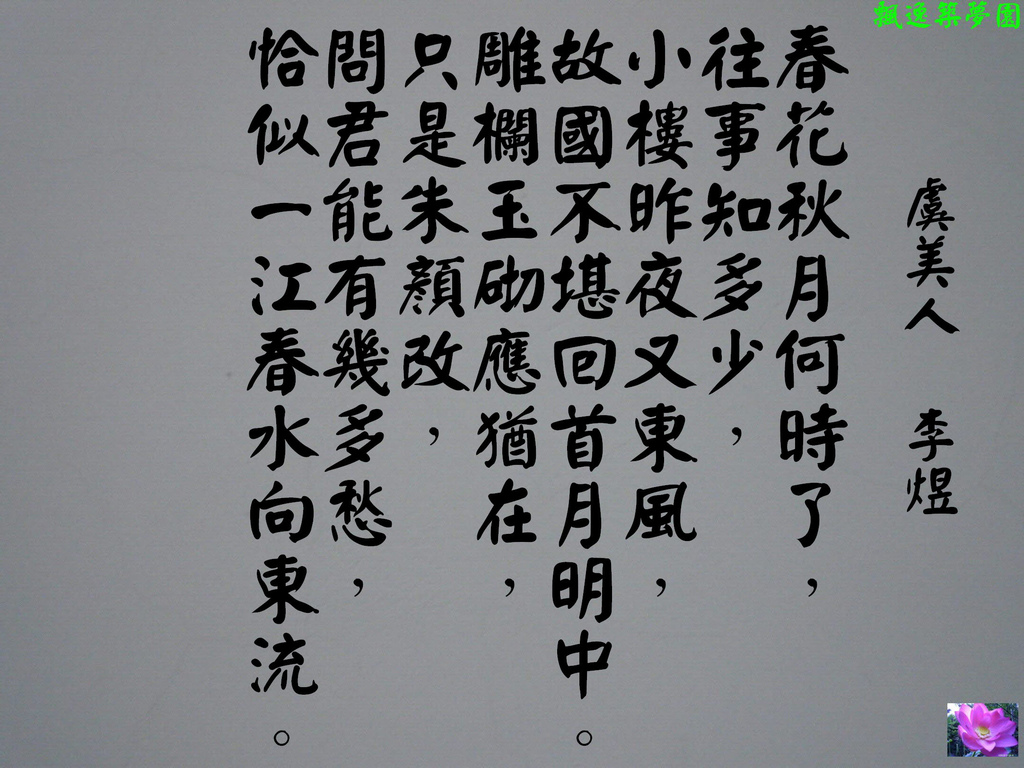 飄逸築夢園
虞美人 李煜
春花秋月何時了，
往事知多少，
小樓昨夜又東風，
故國不堪回首月明中。
雕欄玉砌應猶在，
只是朱顏改，
問君能有幾多愁，
恰似一江春水向東流。